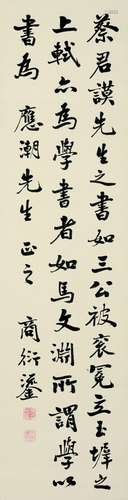 蔡君謨先生之書如三公被袞冕立玉墀之
上軾亦為學書者如馬文淵所謂學以
書為 應潮先生 正之 商衍鎏